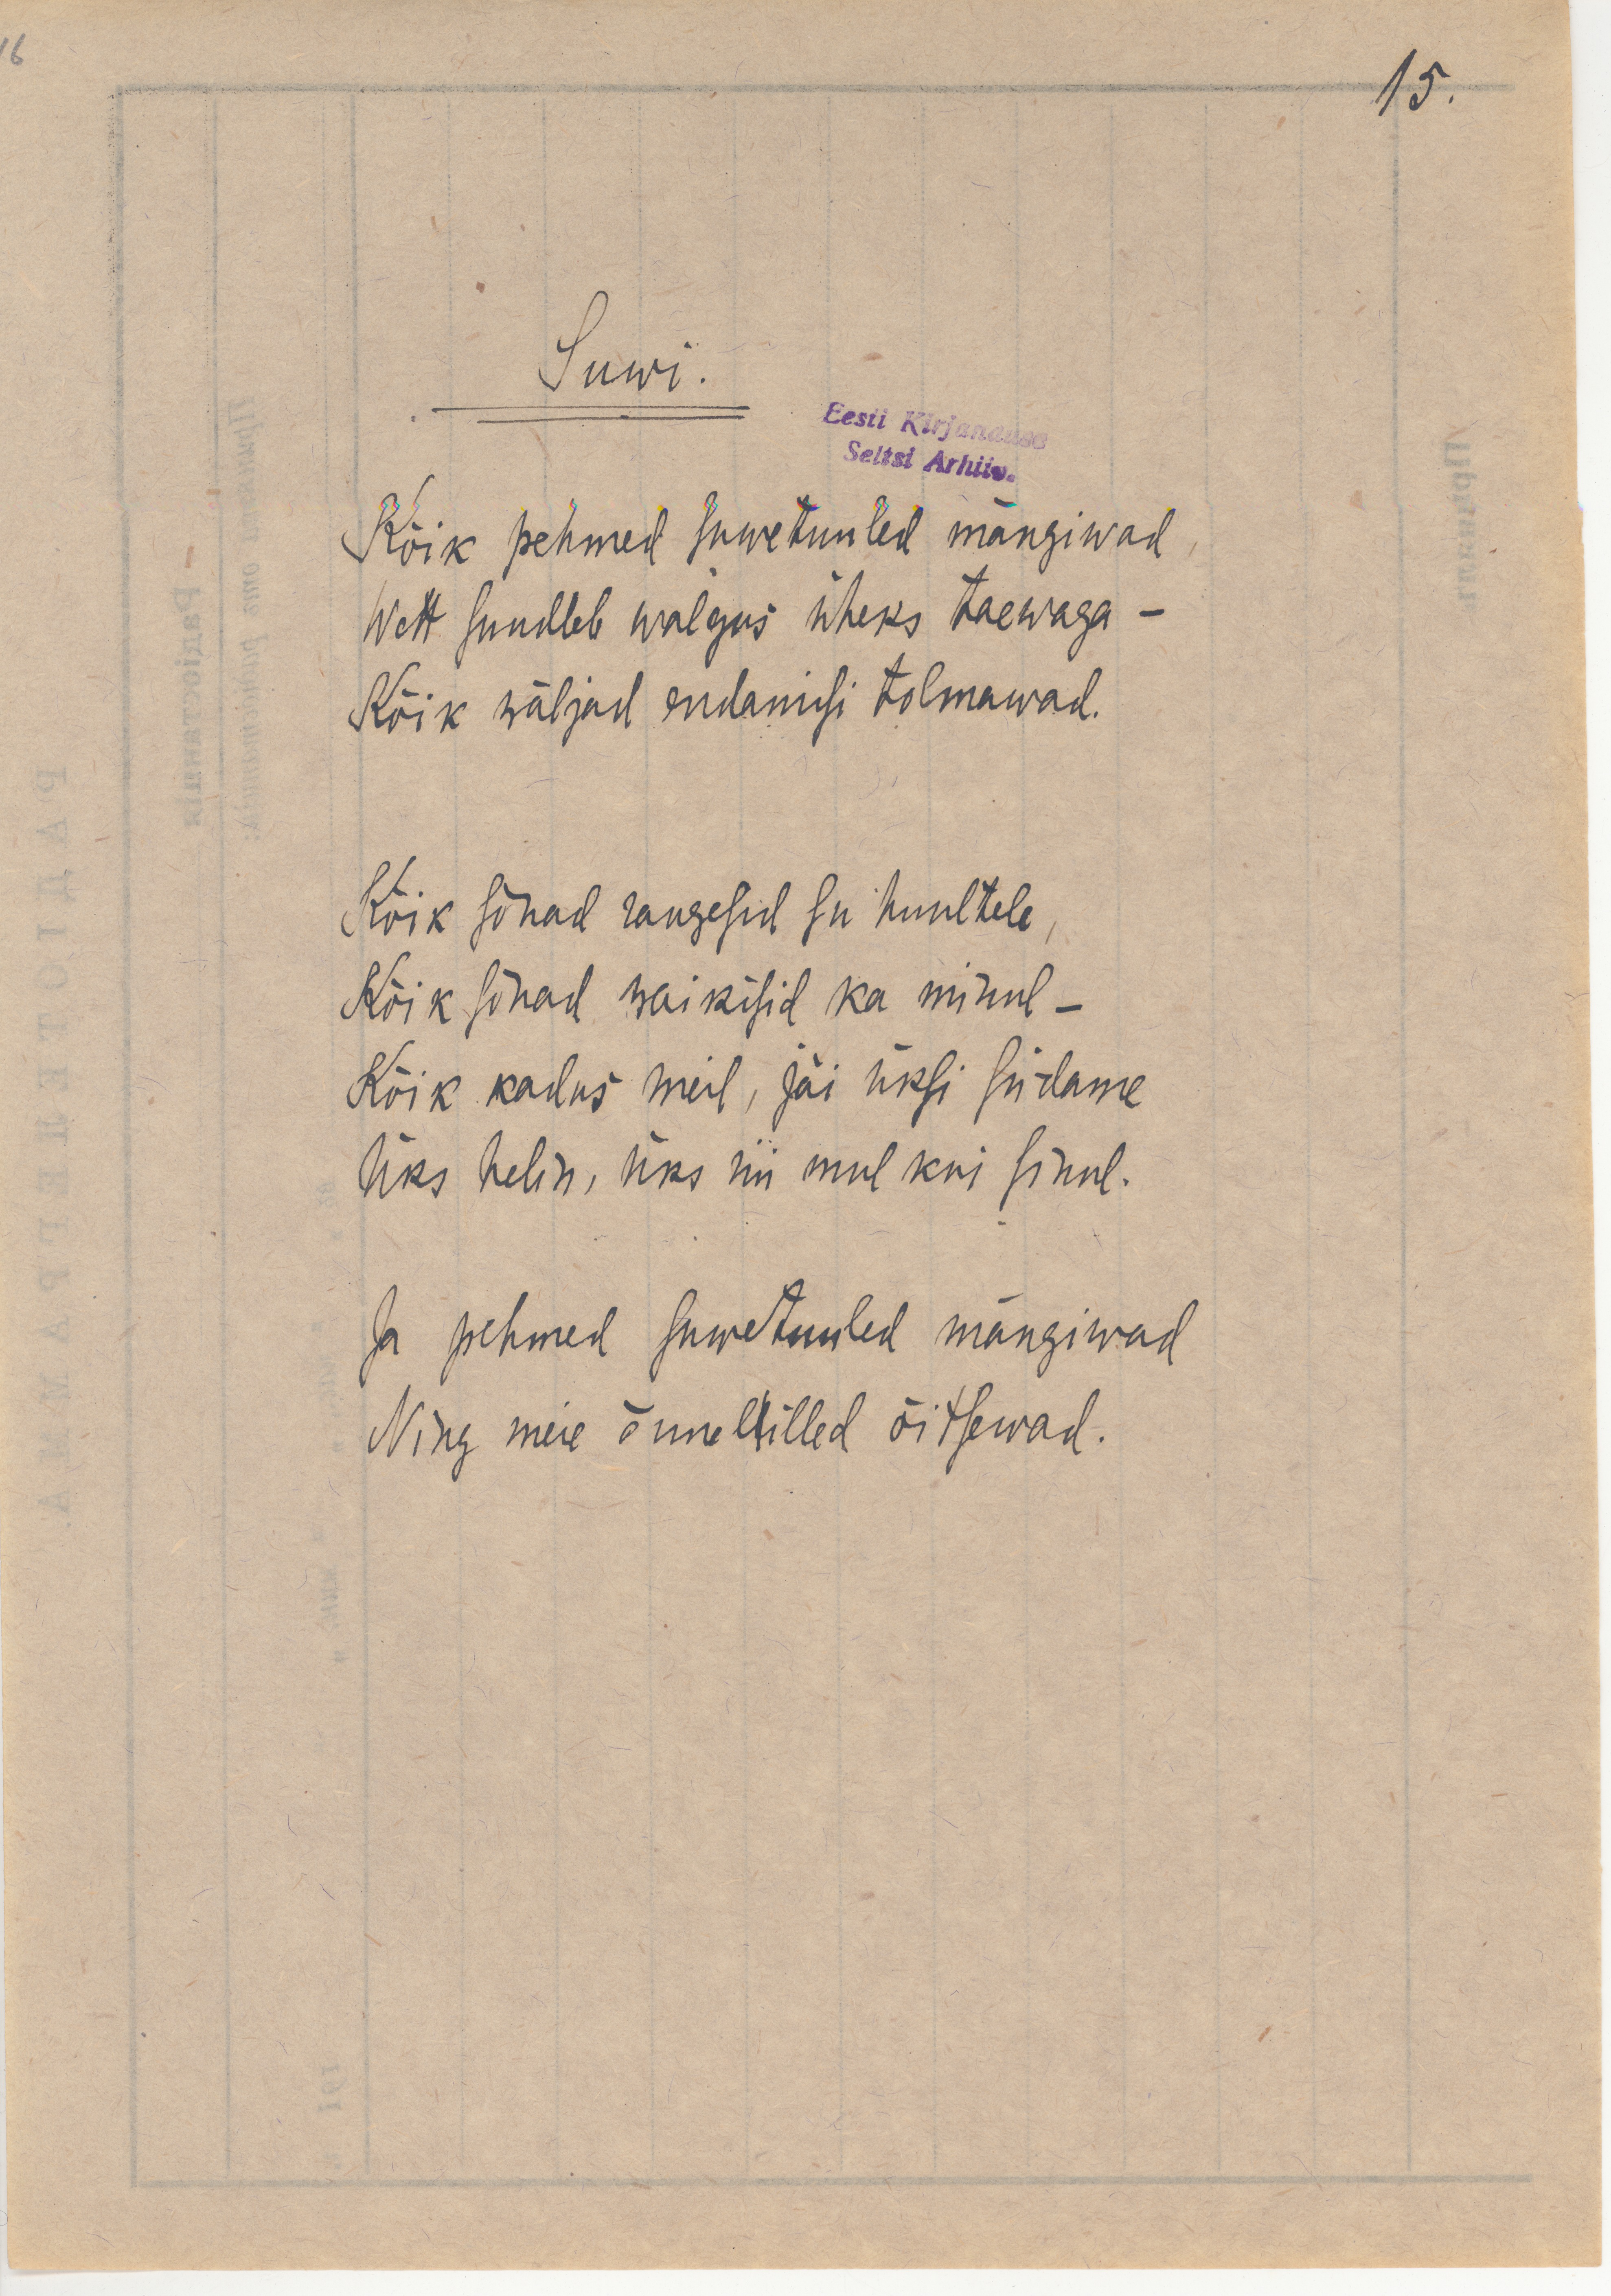 16
15.
Suwi.
Eesti Kirjanduse
Seltsi Arhiiv.
Kõik pehmed suwetuuled mängiwad,
Wett suudleb walgus üheks taewaga –
Kõik wäljad endamisi tolmawad.
Kõik sõnad raugesid su huultele,
Kõik sõnad waikisid ka minul –
Kõik kadus meil, jäi üksi südame
Üks helin, üks nii mul kui sinul.
Ja pehmed suwetuuled mängiwad
Ning meie õnnelilled õitsewad.